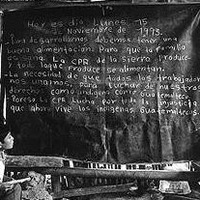 Hoy es día Lunes 15
de Noviembre de 1993.
desarrollarnos debemos tener una
buena alimentación. Para que la familia
sea sana La CPR de la Sierra produce
y todo lo que Produce se alimentan.
La necesidad de que todos los trabajadores
nos unamos, para luchar de nuestros
derechos como indígena sobre Guatemalteco
Por eso La CPR Lucha por toda la injusticia
que ahora vive los indígenas guatemaltecos